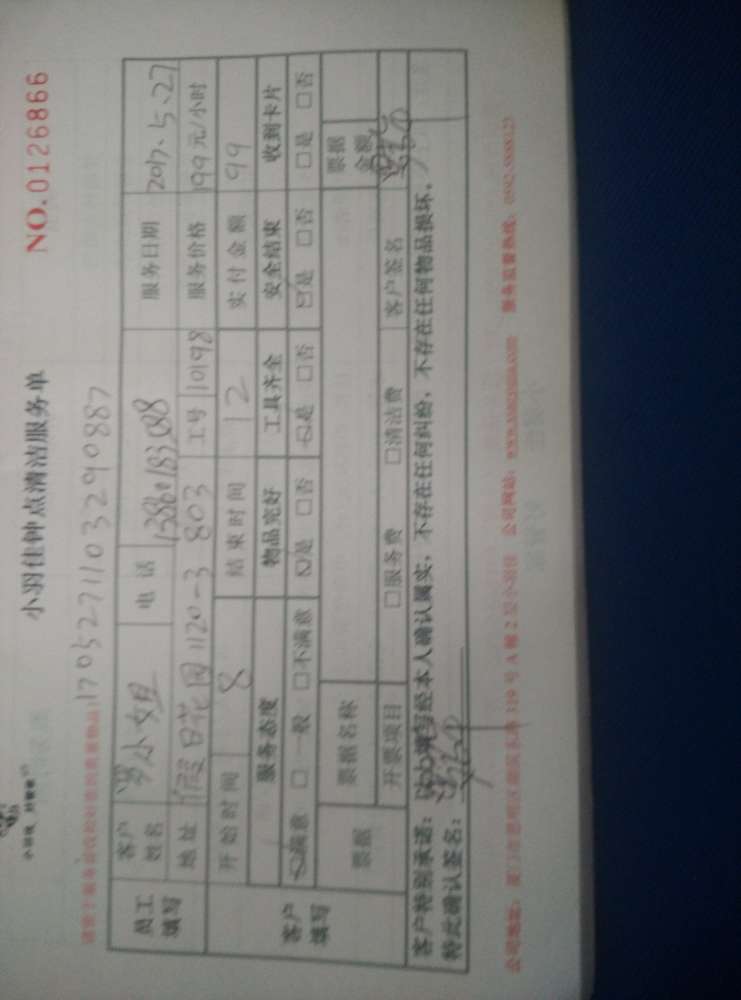 小羽佳钟点清洁服务单
NO.0126866
请要于服务前收拾好您的贵重物品!
1705271103290887
员工填写 客户姓名 罗小姐 电话 服务日期 2017.5.27
地址 假日花园1120-3 803 工号 10198 服务价格 199元/小时
客户填写 开始时间 8 结束时间 12 实付金额 99
服务态度 物品完好 工具齐全 安全结束 收到卡片
☑满意 □一般 □不满意 ☑是 □否 ☑是 □否 ☑是 □否 □是 □否
票据 票据名称 票据金额
开票项目 □服务费 □清洁费 客户签名
客户特别承诺:以上填写经本人确认属实,不存在任何纠纷,不存在任何物品损坏,
特此确认签名:
公司地址: 公司网站: 服务监督热线:0592-5888123